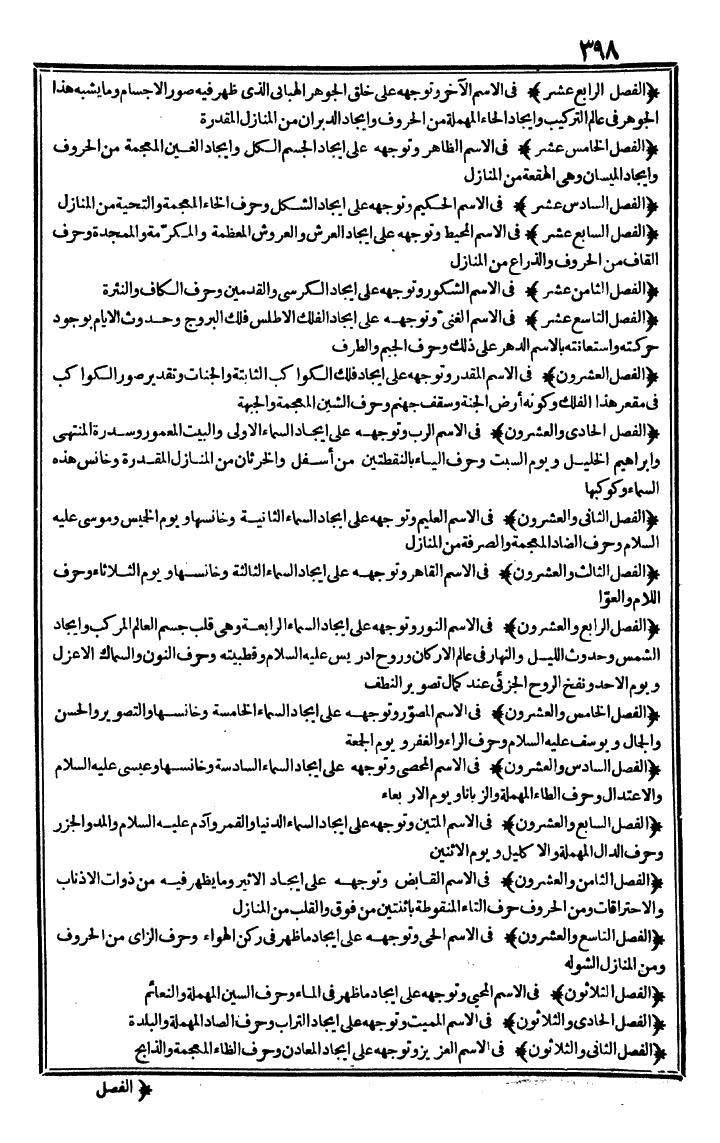 ٣٩٨
﴿الفصل الرابع عشر﴾ فى الاسم الآخر وتوجهه على خلق الجوهر الهبائى الذى ظهر فيه صور الاجسام وما يشبه هذا
الجوهر فى عالم التركيب وايجاد الحاء المهملة من الحروف وايجاد الدبران من المنازل المقدرة
﴿الفصل الخامس عشر﴾ فى الاسم الظاهر وتوجهه على ايجاد الجسم الكل وايجاد الغين المعجمة من الحروف
وايجاد الميسان وهى الهقعة من المنازل
﴿الفصل السادس عشر﴾ فى الاسم الحكيم وتوجهه على ايجاد الشكل وحرف الخاء المعجمة والتحية من المنازل
﴿الفصل السابع عشر﴾ فى الاسم المحيط وتوجهه على ايجاد العرش والعروش المعظمة والمكرّمة والممجدة وحرف
القاف من الحروف والذراع من المنازل
﴿الفصل الثامن عشر﴾ فى الاسم الشكور وتوجهه على ايجاد الكرسى والقدمين وحرف الكاف والنثرة
﴿الفصل التاسع عشر﴾ فى الاسم الغنىّ وتوجهه على ايجاد الفلك الاطلس فلك البروج وحدوث الايام بوجود
حركته واستعانته بالاسم الدهر على ذلك وحرف الجيم والطرف
﴿الفصل العشرون﴾ فى الاسم المقدر وتوجهه على ايجاد فلك الكواكب الثابتة والجنات وتقدير صور الكواكب
فى مقعر هذا الفلك وكونه أرض الجنة وسقف جهنم وحرف الشين المعجمة والجبهة
﴿الفصل الحادى والعشرون﴾ فى الاسم الرب وتوجهه على ايجاد السماء الاولى والبيت المعمور وسدرة المنتهى
وابراهيم الخليل ويوم السبت وحرف الياء بالنقطتين من أسفل والخرثان من المنازل المقدرة وخانس هذه
السماء وكوكبها
﴿الفصل الثانى والعشرون﴾ فى الاسم العليم وتوجهه على ايجاد السماء الثانية وخانسها ويوم الخميس وموسى عليه
السلام وحرف الضاد المعجمة والصرفة من المنازل
﴿الفصل الثالث والعشرون﴾ فى الاسم القاهر وتوجهه على ايجاد السماء الثالثة وخانسها ويوم الثلاثاء وحرف
اللام والعوّا
﴿الفصل الرابع والعشرون﴾ فى الاسم النور وتوجهه على ايجاد السماء الرابعة وهى قلب جسم العالم المركب وايجاد
الشمس وحدوث الليل والنهار فى عالم الاركان وروح ادريس عليه السلام وقطبيته وحرف النون والسماك الاعزل
ويوم الاحد ونفخ الروح الجزئى عند كمال تصوير النطف
﴿الفصل الخامس والعشرون﴾ فى الاسم المصوّر وتوجهه على ايجاد السماء الخامسة وخانسها والتصوير والحسن
والجمال ويوسف عليه السلام وحرف الراء والغفر ويوم الجمعة
﴿الفصل السادس والعشرون﴾ فى الاسم المحصى وتوجهه على ايجاد السماء السادسة وخانسها وعيسى عليه السلام
والاعتدال وحرف الطاء المهملة والزبانا ويوم الاربعاء
﴿الفصل السابع والعشرون﴾ فى الاسم المتين وتوجهه على ايجاد السماء الدنيا والقمر وآدم عليه السلام والمد والجزر
وحرف الدال المهملة والاكليل ويوم الاثنين
﴿الفصل الثامن والعشرون﴾ فى الاسم القابض وتوجهه على ايجاد الاثير وما يظهر فيه من ذوات الاذناب
والاحتراقات ومن الحروف حرف التاء المنقوطة باثنتين من فوق والقلب من المنازل
﴿الفصل التاسع والعشرون﴾ فى الاسم الحى وتوجهه على ايجاد ماظهر فى ركن الهواء وحرف الزاى من الحروف
ومن المنازل الشوله
﴿الفصل الثلاثون﴾ فى الاسم المحيى وتوجهه على ايجاد ماظهر فى الماء وحرف السين المهملة والنعائم
﴿الفصل الحادى والثلاثون﴾ فى الاسم المميت وتوجهه على ايجاد التراب وحرف الصاد المهملة والبلدة
﴿الفصل الثانى والثلاثون﴾ فى الاسم العزيز وتوجهه على ايجاد المعادن وحرف الظاء المعجمة والذابح
﴿ الفصل